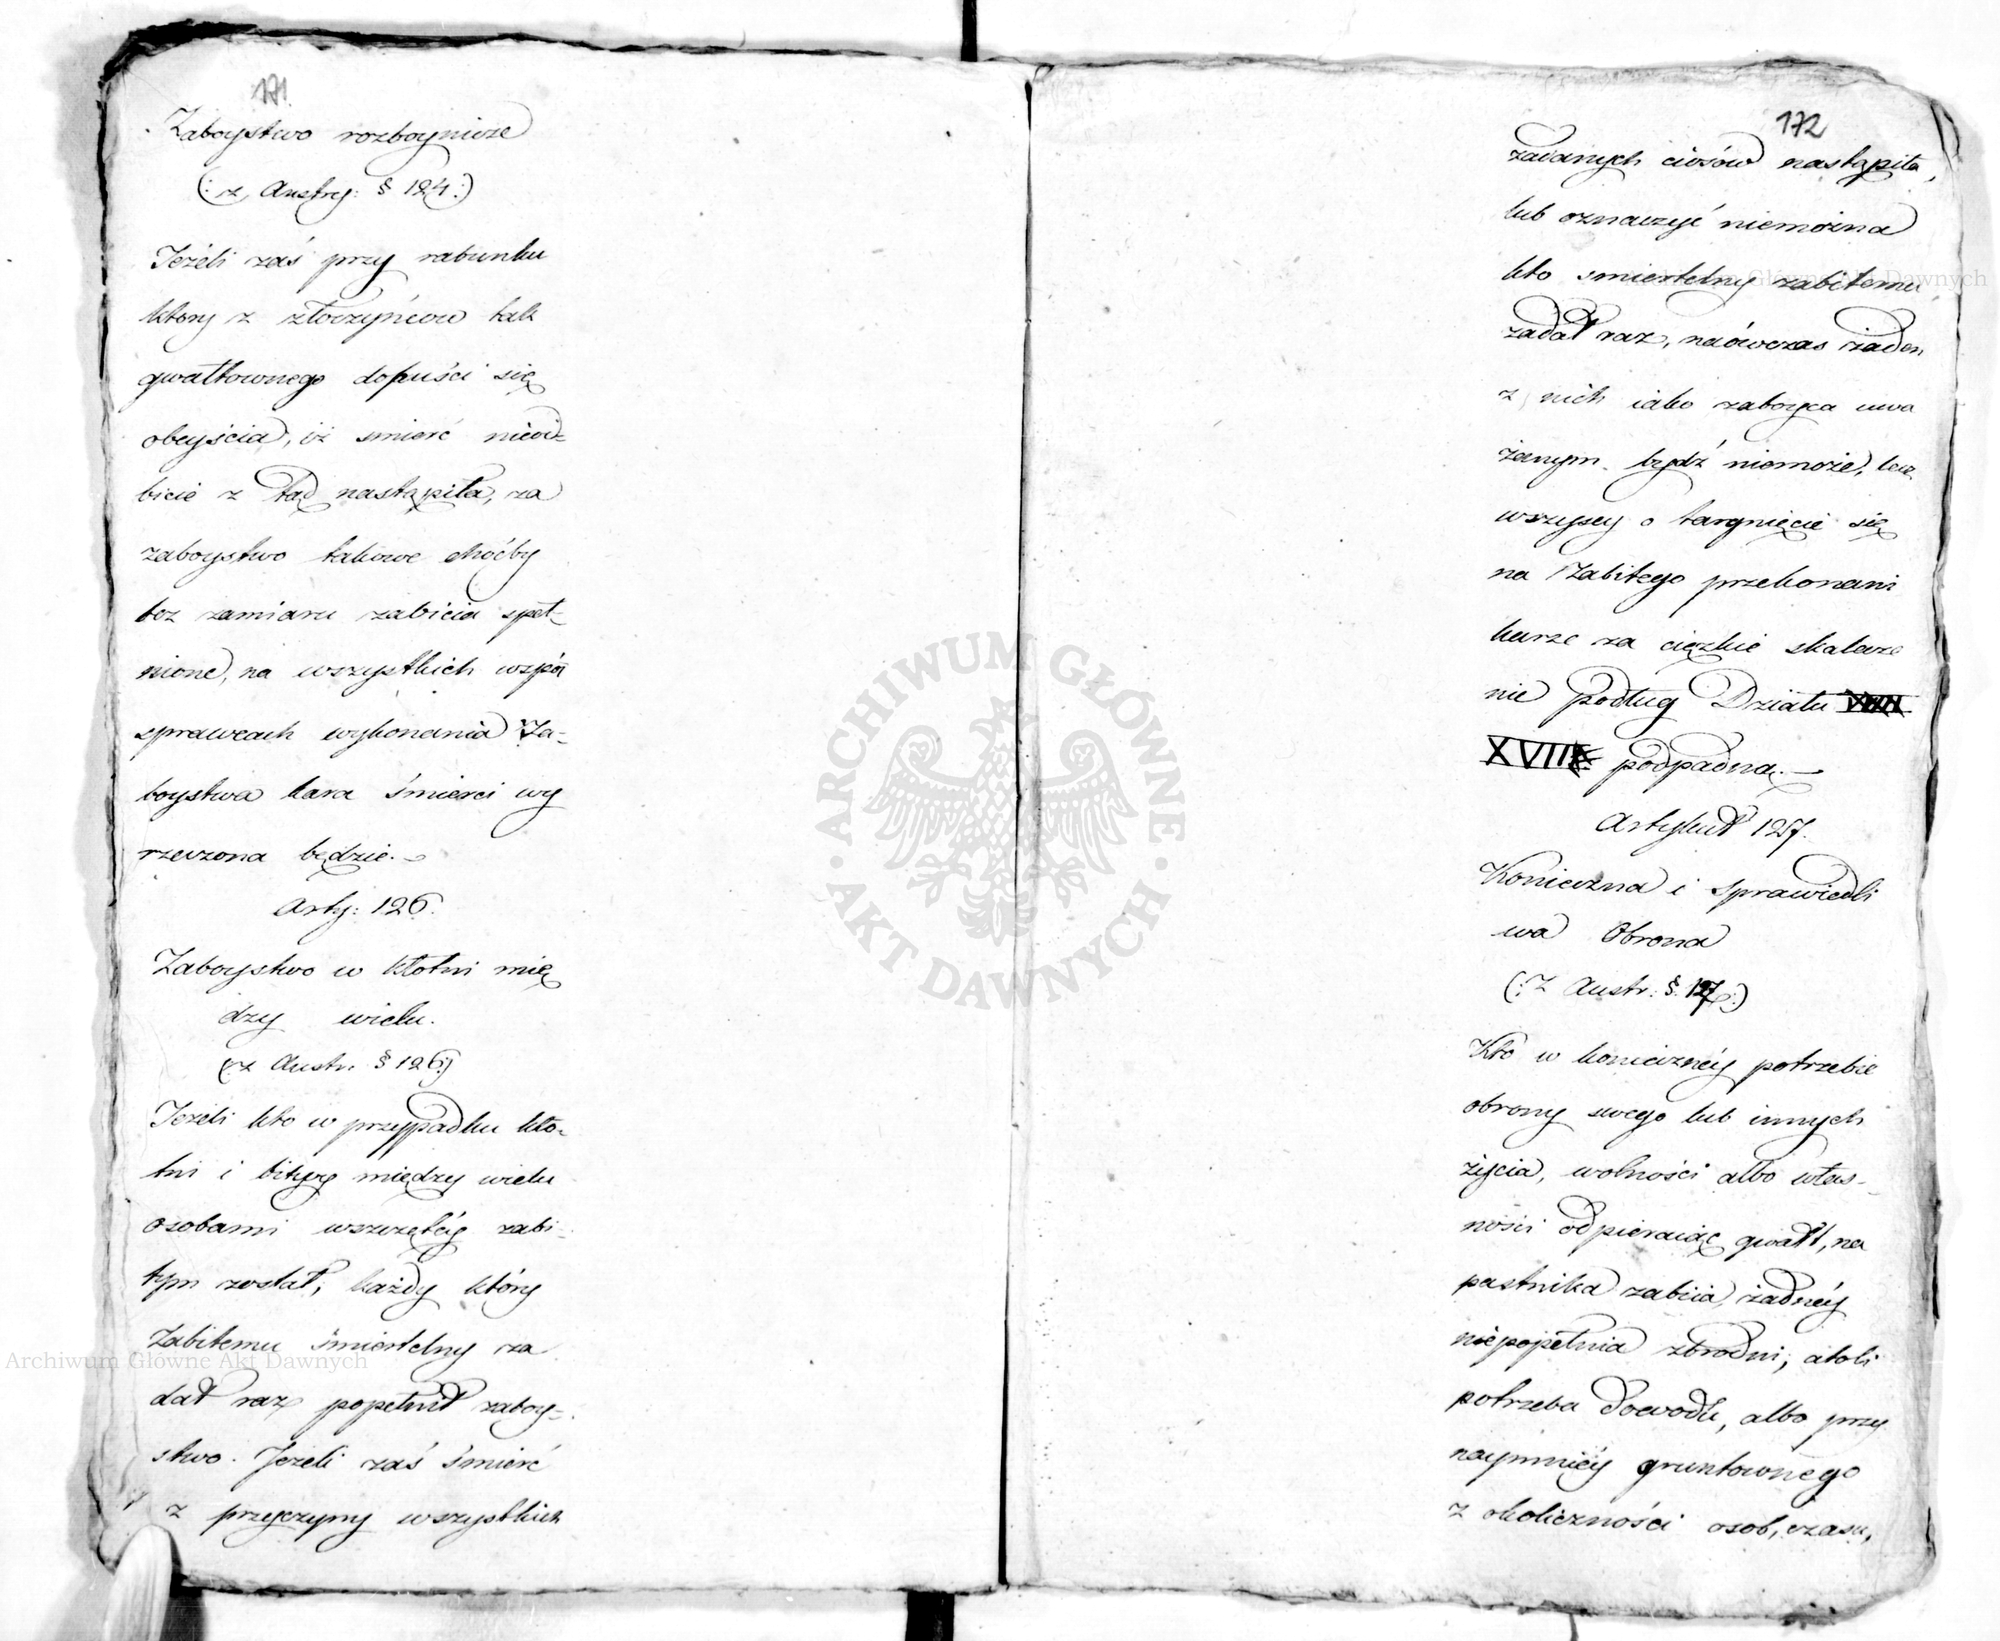 171.
Zaboystwo rozboynicze
(: z Austry: § 124:)
Jeżeli zaś przy rabunku
ktory z złoczyńców tak
gwałtownego dopuści się
obeyścia, iż smierć niewi=
bicie z tąd nastąpiła, za
zaboystwo takowe choćby
bez zamiaru zabicia speł=
nione, na wszystkich wspoł
sprawcach wykonania Za=
boystwa kara śmierci wy
rzeczona będzie.—
Arty: 126.
Zaboystwo w kłotni mię
dzy wielu.
(:z Austr. § 126:)
Jeżeli kto w przyppadku kło=
tni i bitwy między wielu
osobami wszczętéy zabi=
tym został; każdy który
Zabitemu śmiertelny za
dał raz popełnił zaboy=
stwo. Jeżeli zaś śmierć
z przyczyny wszystkich
172
zadanych ciosów nastąpiła,
lub oznaczyć niemożna
kto smiertelny zabitemu
zadał raz, naówczas żaden
z nich iako zaboyca uwa
żanym bydź niemoże, lecz
wszyscy o targnięcie się
na Zabitego przekonani
karze za cięzkie skalecze
nie podług Działu
XVIII podpadną.—
Artykuł 127.
Konieczna i sprawiedli
wa Obrona
(: Z Austr: §. 127:)
Kto w koniecznéy potrzebie
obrony swego lub innych
życia, wolności albo włas=
ności odpieraiąc gwałt, na
pastnika zabiia, żadnéy
niepopełnia zbrodni; atoli
potrzeba dowodu, albo przy
naymniéy gruntownego
z okoliczności osob, czasu,
Archiwum Główne Akt Dawnych
Archiwum Główne Akt Dawnych
ARCHIWUM GŁÓWNE · AKT DAWNYCH ·